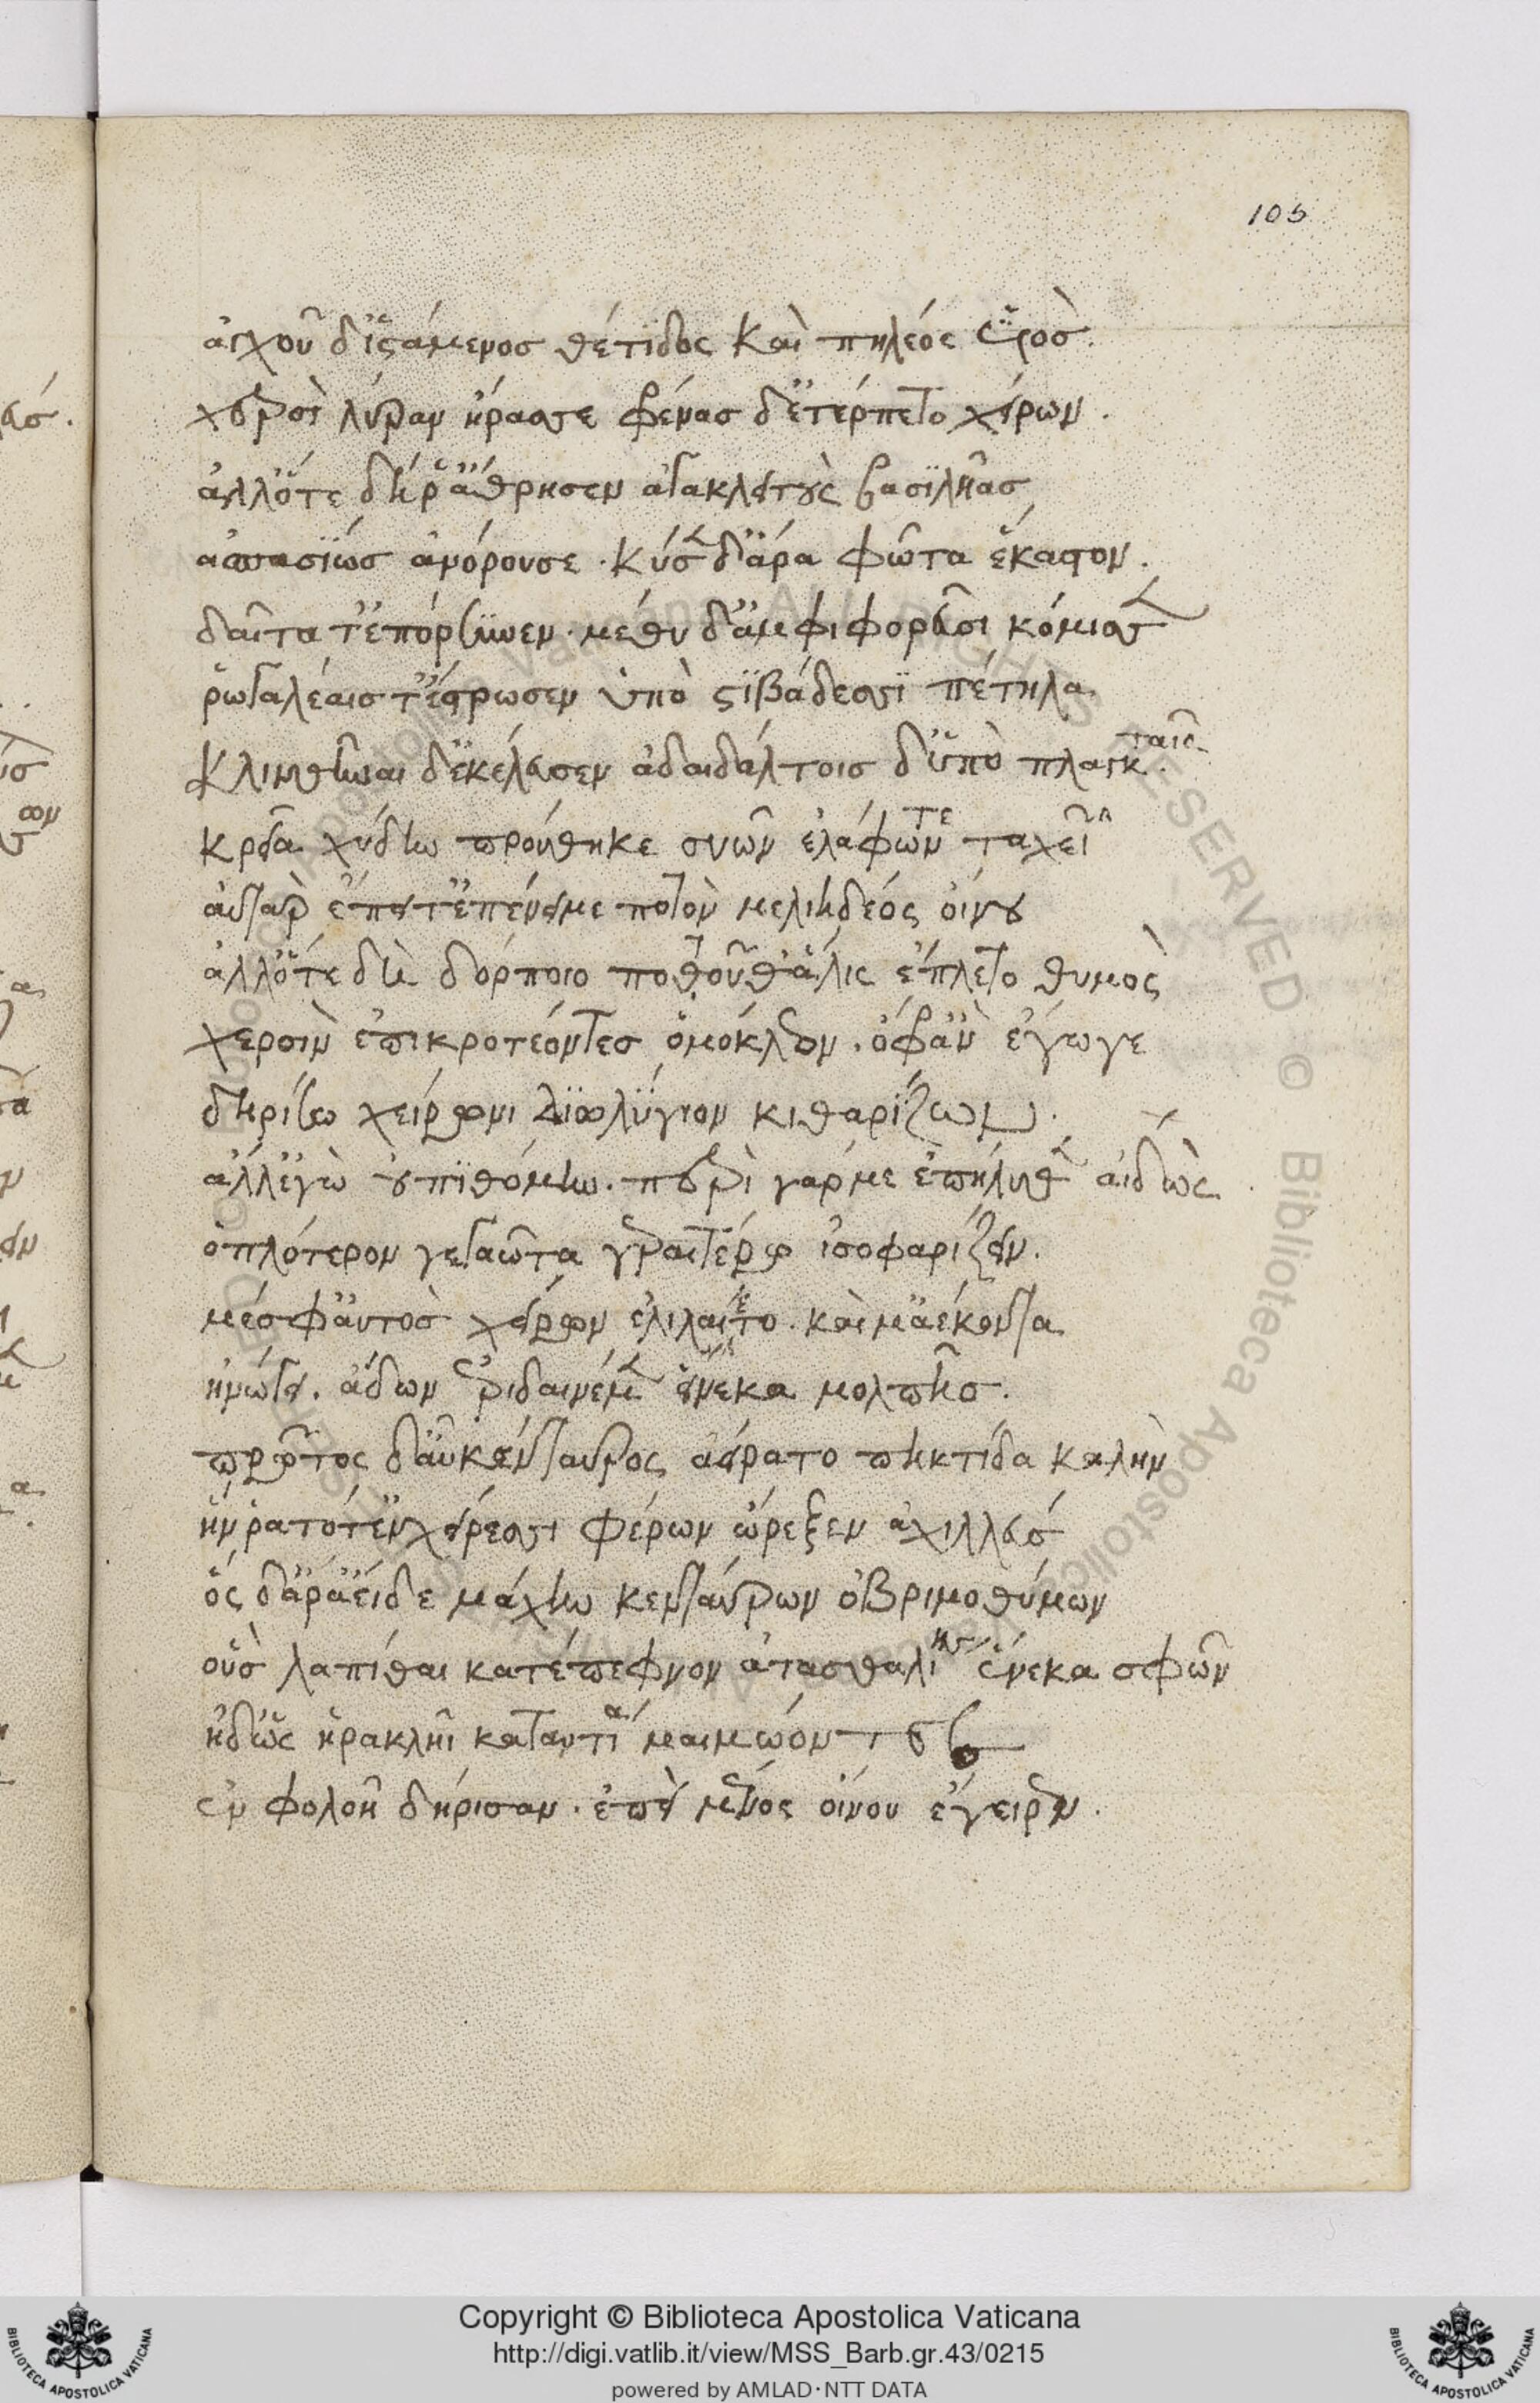 105
ἀγχοῦ δ' ἱστάμενος θέτιδος καὶ πηλέος υἱὸς
χερσὶ λύραν ἤρασσε φρένας δ' ἐτέρπετο χείρων.
ἀλλ' ὅτε δή ῥ' ἄθρησεν ἀγακλειτοὺς βασιλῆας
ἀσπασίως ἀνόρουσε. κύσεν δ' ἄρα φῶτα ἕκαστον.
δαῖτά τ' ἐπόρσυνεν. μέθυ δ' ἀμφιφορεῦσι κόμισσεν
ῥωγαλέαις τ' ἔστρωσεν ὑπὸ στιβάδεσσι πέτηλα
κλινθῆναι δ' ἐκέλευσεν ἀδαιδάλτοις δ' ὑπὸ πλαγκταῖς.
κρεῖα χύδην προύθηκε συῶν ἐλάφων τε ταχειῶν
αὐτὰρ ἔπειτ' ἐπένειμε ποτὸν μελιηδέος οἴνου
ἀλλ' ὅτε δὴ δόρποιο ποτοῦ θ' ἅλις ἔπλετο θυμὸς
χερσὶν ἐπικροτέοντες ὁμόκλεον. ὄφρ' ἂν ἔγωγε
δηρίσω χείρωνι διωλύγιον κιθαρίζων.
ἀλλ' ἐγὼ οὐ πιθόμην. περὶ γάρ με ἐπήλυθεν αἰδὼς
ὁπλότερον γεγαῶτα γεραιτέρῳ ἰσοφαρίζειν.
μέσφ' αὐτὸς χείρων ἐλιλαίετο. καί μ' ἀέκοντα
ἠνώγει. ἄδων ἐριδαινέμεν εἵνεκα μολπῆς.
πρῶτος δ' αὖ κένταυρος ἀείρατο πηκτίδα καλὴν
ἥν ῥα τότ' ἐν χείρεσσι φέρων ὤρεξεν ἀχιλλεύς
ὃς δ' ἄρ' ἄειδε μάχην κενταύρων ὀβριμοθύμων
οὓς λαπίθαι κατέπεφνον ἀτασθαλίης εἵνεκα σφῶν
ἠδ' ὡς ἡρακλῆι καταντία μαιμώοντες
ἐν φολοῇ δήρισαν. ἐπεὶ μένος οἴνου ἔγειρεν.
Copyright © Biblioteca Apostolica Vaticana
http://digi.vatlib.it/view/MSS_Barb.gr.43/0215
powered by AMLAD·NTT DATA